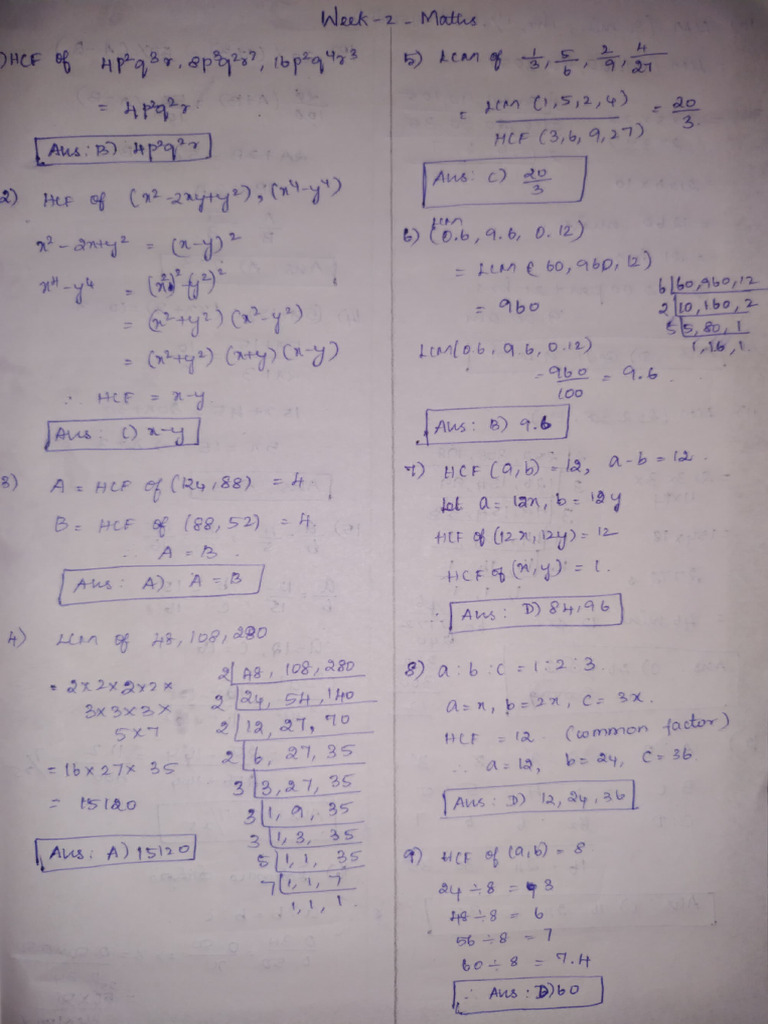 Week-2 - Maths
1) HCF of 4p²q³r, 8p³q²r², 16p²q⁴r³
= 4p²q²r
Ans: B) 4p²q²r
2) HCF of (x²-2xy+y²), (x⁴-y⁴)
x²-2x+y² = (x-y)²
x⁴-y⁴ = (x²)²-(y²)²
= (x²+y²) (x²-y²)
= (x²+y²) (x+y) (x-y)
∴ HCF = x-y
Ans: C) x-y
3) A = HCF of (124,88) = 4
B = HCF of (88,52) = 4
∴ A = B
Ans: A) A = B
4) LCM of 48,108,280
= 2×2×2×2×
3×3×3×
5×7
= 16×27×35
= 15120
Ans: A) 15120
2|48, 108, 280
2|24, 54, 140
2|12, 27, 70
2|6, 27, 35
3|3, 27, 35
3|1, 9, 35
3|1, 3, 35
5|1, 1, 35
7|1, 1, 7
1, 1, 1.
5) LCM of 1/3, 5/6, 2/9, 4/27
= LCM (1,5,2,4) / HCF (3,6,9,27) = 20/3
Ans: C) 20/3
6) LCM (0.6, 9.6, 0.12)
= LCM (60,960,12)
= 960
6|60,960,12
2|10,160,2
5|5,80,1
1,16,1.
LCM(0.6, 9.6, 0.12)
= 960/100 = 9.6.
Ans: B) 9.6
7) HCF (a,b) = 12, a-b = 12.
let a = 12x, b = 12y
HCF of (12x,12y) = 12
HCF of (x,y) = 1.
∴ Ans: D) 84,96
8) a:b:c = 1:2:3.
a=x, b=2x, c=3x.
HCF = 12 (common factor)
∴ a=12, b=24, c=36.
Ans: D) 12,24,36
9) HCF of (a,b) = 8
24÷8 = 3
48÷8 = 6
56÷8 = 7
60÷8 = 7.4
∴ Ans: D) 60